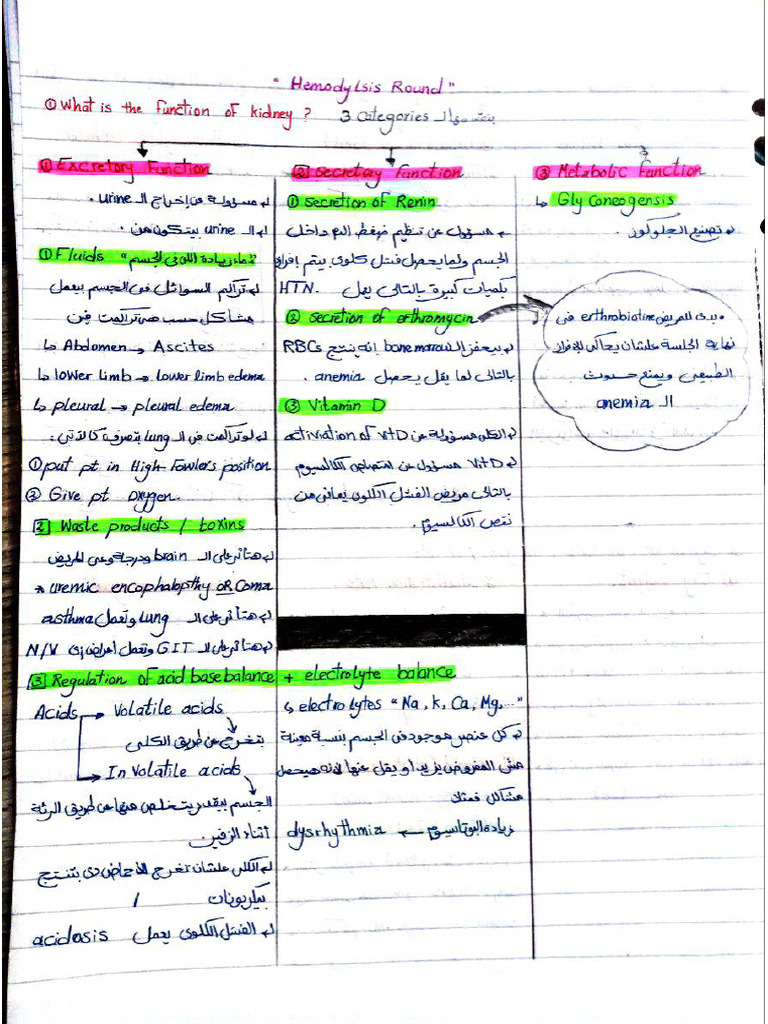 " Hemodylsis Round "
① What is the function of kidney ? 3 categories بنقسم الـ
① Excretory Function
↳ مسؤولة عن إخراج الـ urine .
↳ الـ urine بيتكون من .
① Fluids
↳ تراكم السوائل في الجسم بيعمل
مشاكل حسب هي تراكمت فين
↳ Abdomen → Ascites
↳ lower limb → lower limb edema
↳ pleural → pleural edema
↳ لو تراكمت في الـ lung بتصرف كالآتي :
① put pt in High-Fowler's position
② Give pt oxygen.
2 Waste products / toxins
↳ هتأثر على الـ brain ودرجة وعي المريض
* uremic encephalopthy OR Coma
↳ هتأثر على الـ lung وتعمل asthma
↳ هتأثر على الـ GIT وتعمل أعراض زي N/V
3 Regulation of acid base balance + electrolyte balance
Acids → Volatile acids
بتخرج عن طريق الكلى
→ In Volatile acids
الجسم بيقدر يتخلص منها عن طريق الرئة
أثناء الزفير.
↳ الكلى علشان تخرج الأحماض دي بتنتج
بيكربونات /
↳ الفشل الكلوي يعمل acidosis
2 Secretary Function
① Secretion of Renin
↳ مسؤول عن تنظيم ضغط الدم داخل
الجسم ولما يحصل فشل كلوي بيتم إفرازه
بكميات كبيرة بالتالي يعمل HTN.
② Secretion of erthromycin
↳ بيحفز الـ bone marow إنه ينتج RBCs
بالتالي لما يقل يحصل anemia .
③ Vitamin D
↳ الكلى مسؤولة عن activiation of vit D
↳ Vit D مسؤول عن امتصاص الكالسيوم
بالتالي مريض الفشل الكلوي يعاني من
نقص الكالسيوم .
↳ electrolytes " Na, K, Ca, Mg, ... "
↳ كل عنصر موجود في الجسم بنسبة معينة
مش المفروض يزيد أو يقل عنها لأنه هيحصل
مشاكل فمثلا
زيادة البوتاسيوم ← dysrhythmia
③ Metabolic Function
↳ Glyconeogensis
↳ تصنيع الجلوكوز .
• بدي للمريض erthrobiotine في
نهاية الجلسة علشان يحاكي الإفراز
الطبيعي ويمنع حدوث
الـ anemia